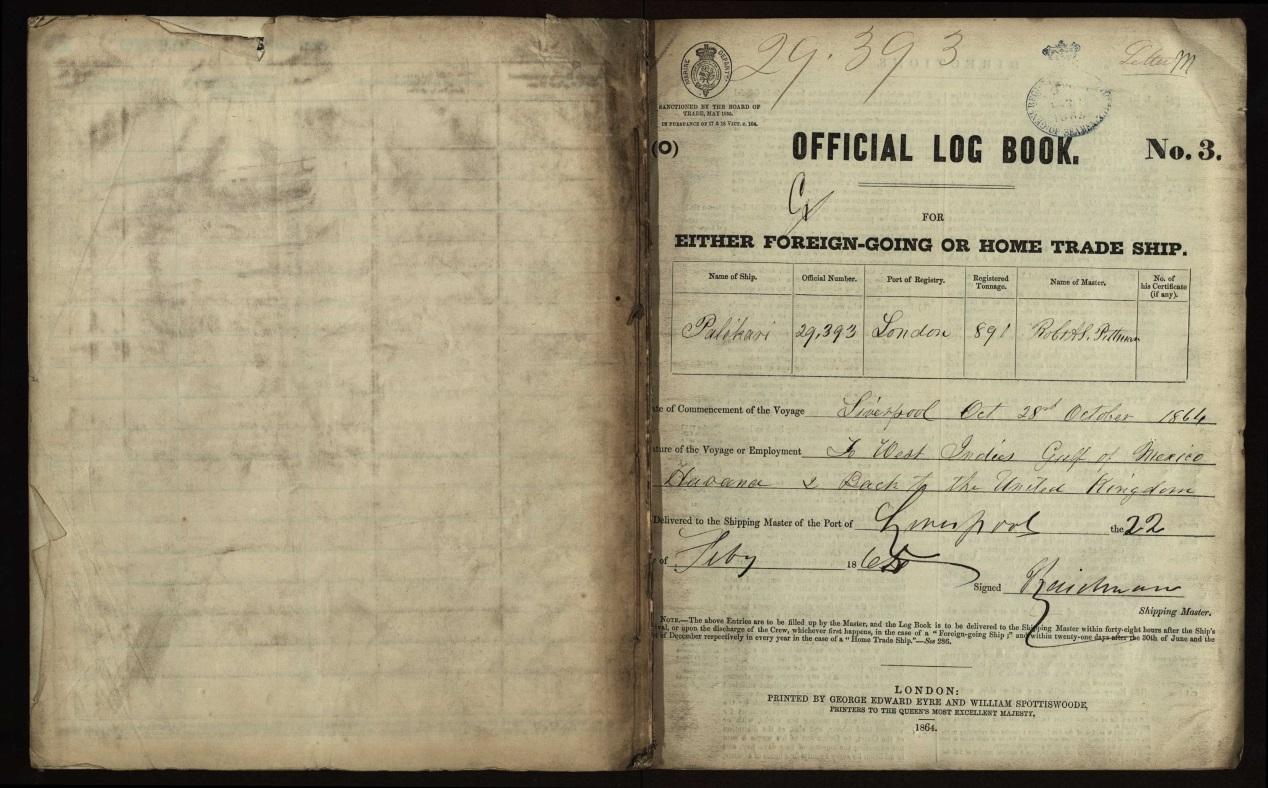 29.393
Letter M
MARINE DEPARTMENT
SANCTIONED BY THE BOARD OF
TRADE, MAY
IN PURSUANCE OF 17 & 18 VICT. c. 104.
(O)
OFFICIAL LOG BOOK.
No. 3.
FOR
EITHER FOREIGN-GOING OR HOME TRADE SHIP.
Name of Ship. Official Number. Port of Registry. Registered Tonnage. Name of Master. No. of his Certificate (if any).
Palikari 29,393 London 891 Pittman
te of Commencement of the Voyage Liverpool Oct 28 October 1864
ture of the Voyage or Employment To West Indies Gulf of Mexico
Havana & Back to the United Kingdom
Delivered to the Shipping Master of the Port of Liverpool the 22
of Feby 1865
Signed
Shipping Master.
NOTE.—The above Entries are to be filled up by the Master, and the Log Book is to be delivered to the Shipping Master within forty-eight hours after the Ship's
ival, or upon the discharge of the Crew, whichever first happens, in the case of a "Foreign-going Ship;" and within twenty-one days after the 30th of June and the
t of December respectively in every year in the case of a "Home Trade Ship."—See 286.
LONDON:
PRINTED BY GEORGE EDWARD EYRE AND WILLIAM SPOTTISWOODE,
PRINTERS TO THE QUEEN'S MOST EXCELLENT MAJESTY.
1864.